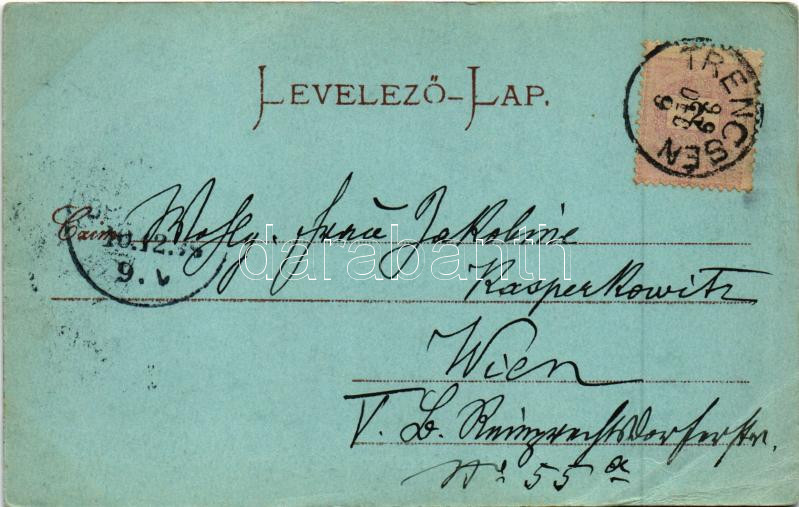 LEVELEZŐ-LAP.
TRENCSÉN
Czim
Wohlg. Frau Jakobine
Kasperkowitz
Wien
V. B. Reinprechtsdorferstr.
No 55 a
10.12.
9. V
darabanth